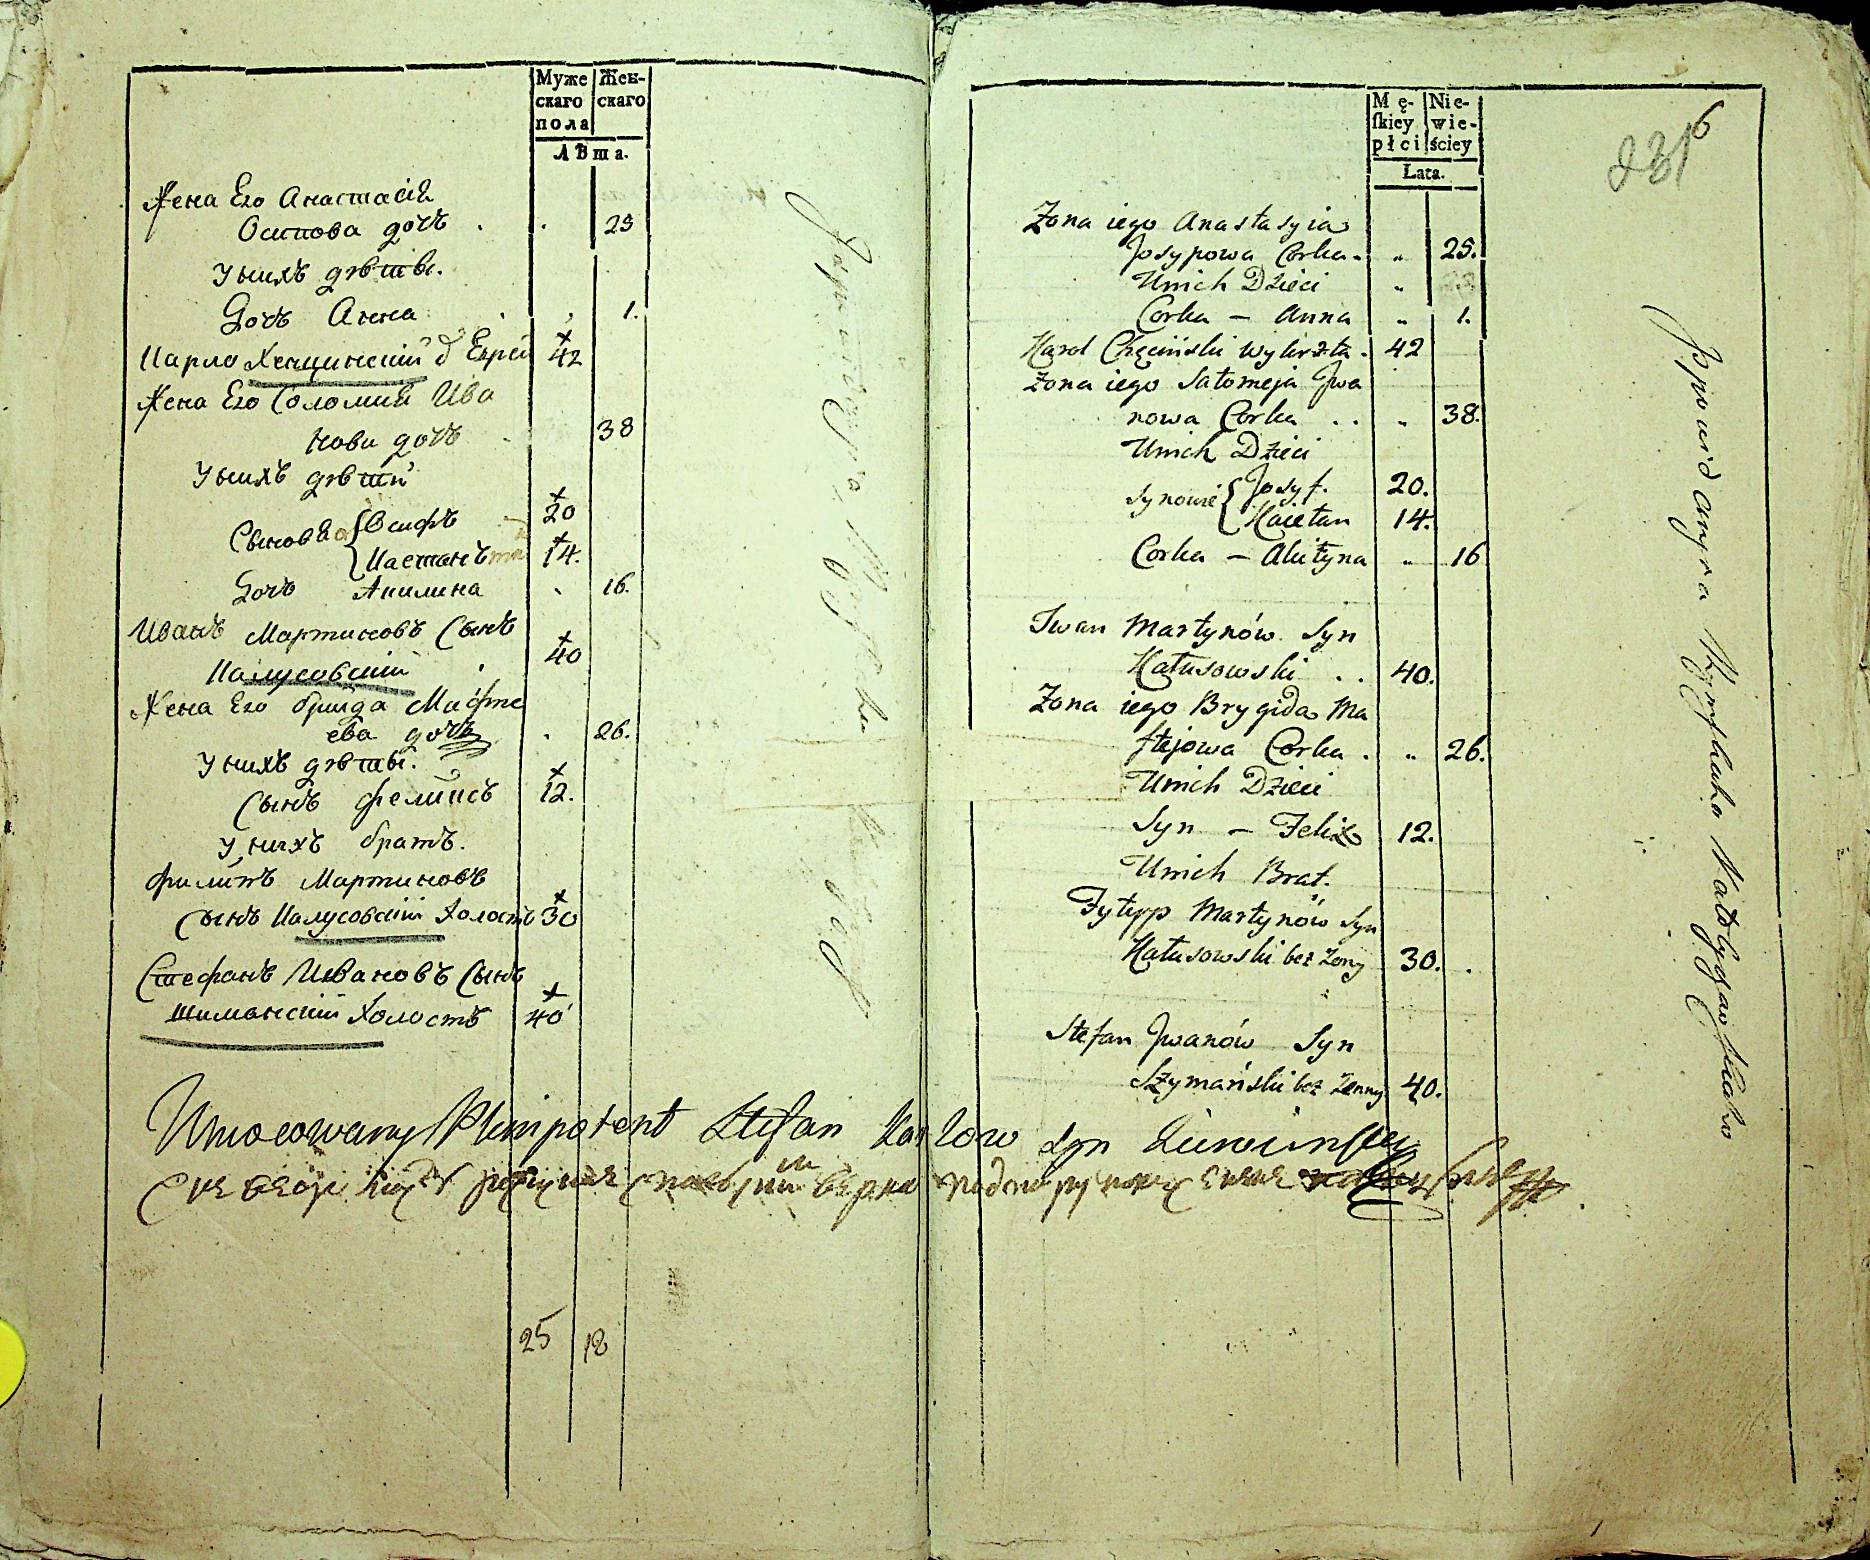 Муже Жен-
скаго скаго
пола
Лѣта.
Жена Его Анастасія
Осипова дочъ . . 25
У нихъ дѣти.
Дочъ Анна 1.
Карло Хенцинскій 42
Жена Его Соломия Ива
нова дочъ 38
У нихъ дѣти
Сыновя Осифъ 20
Каетанъ 14.
Дочъ Акилина 16.
Иванъ Мартиновъ Сынъ
Калусовскій 40
Жена Его Бригида Мафте
ева дочъ 26.
У нихъ дѣти.
Сынъ Феликсъ 12.
У нихъ братъ.
Филипъ Мартиновъ
Сынъ Калусовскій Холостъ 30
Стефанъ Ивановъ Сынъ
Шиманскій Холостъ 40
25 18
Mę- Nie-
skiey wie-
płci ściey
Lata.
6
231
Zona iego Anastasyia
Josypowa Corka. „ 25.
Unich Dzieci „
Corka – Anna „ 1.
Karol Chęciński wyhrzta. 42
Zona iego Salomeja Jwa
nowa Corka . . „ 38.
Unich Dzieci
Synowie Josyf. 20.
Kaietan 14.
Corka – Akiłyna „ 16
Iwan Martynów Syn
Kałusowski . . 40.
Zona iego Brygida Ma
ftejowa Corka . „ 26.
Unich Dzieci
Syn – Felix 12.
Unich Brat.
Fylypp Martynów Syn
Kałusowski bez Zony 30.
Stefan Jwanów Syn
Szymański bez Zenny 40.
Umocowany Plenipotent Stefan Karlow Syn